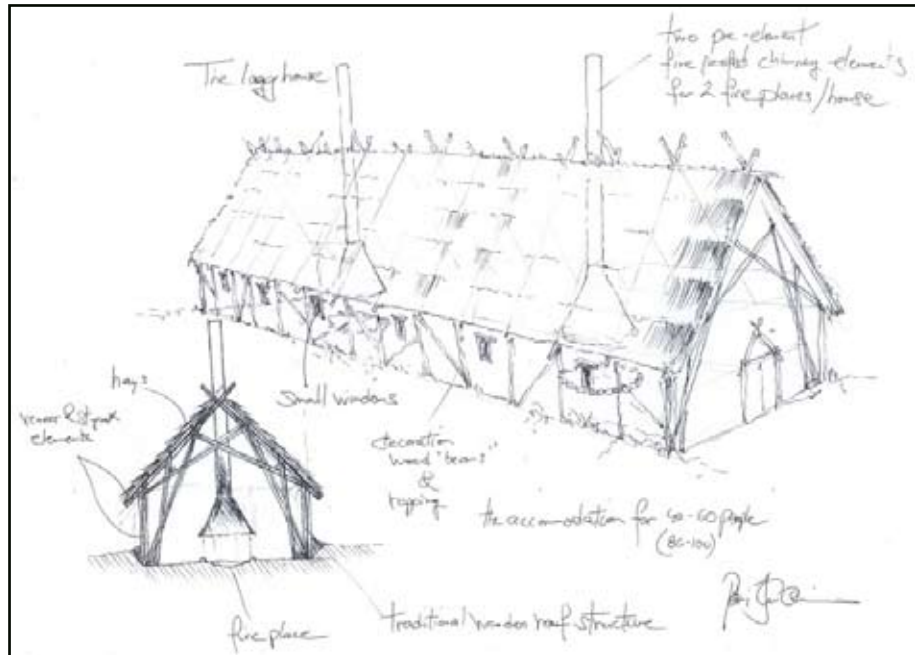 The logg house
two pre-element
fire chimney elements
for 2 fire places/house
hays
elements
small windows
decoration
wood "beams"
&
roping
the accomodation for 40-60 people
(80-100)
fire place
traditional wooden roof structure